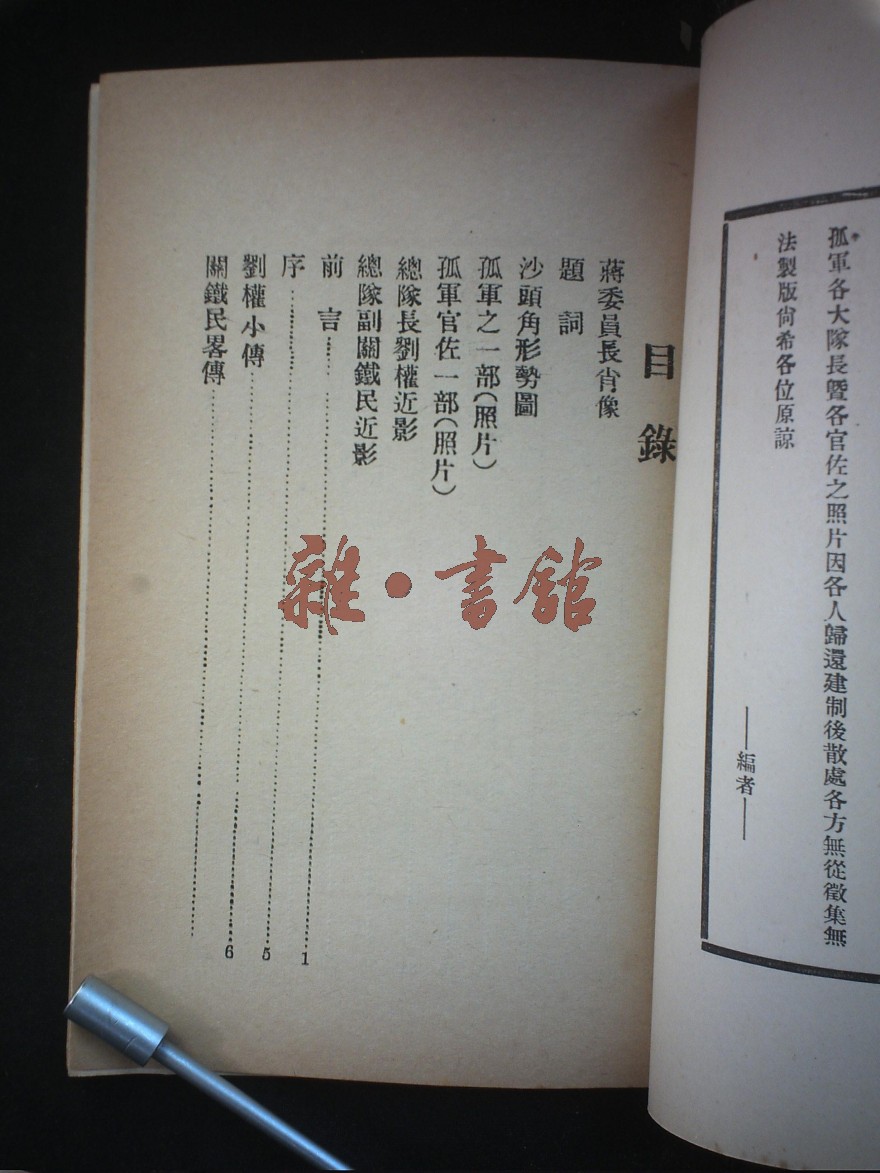 孤軍各大隊長曁各官佐之照片因各人歸還建制後散處各方無從徵集無
法製版尙希各位原諒
——編者——
目錄
蔣委員長肖像
題詞
沙頭角形勢圖
孤軍之一部(照片)
孤軍官佐一部(照片)
總隊長劉權近影
總隊副關鐵民近影
前言……………………1
序……………………5
劉權小傳……………………6
關鐵民畧傳……………………
雜•書館